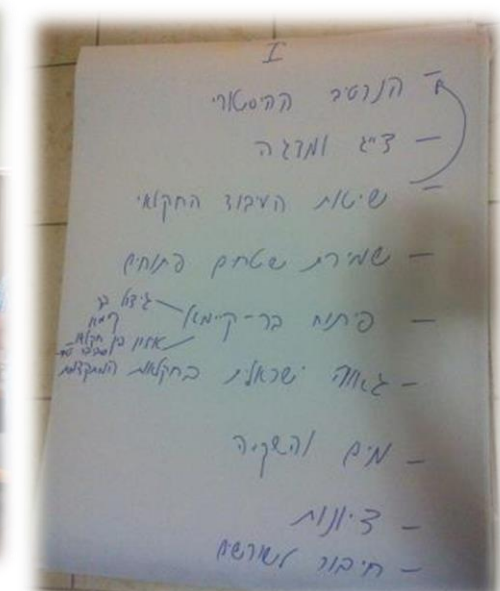 I
- הנרטיב ההיסטורי
- ציג ומדגה
- שיטות העיבוד החקלאי
- שמירת שטחים פתוחים
- פיתוח בר-קיימא
גידול בר קיימא
איזון בין חקלאות
- גאווה ישראלית בחקלאות המתקדמת
- מים והשקיה
- ציונות
- חיבור לשורשים